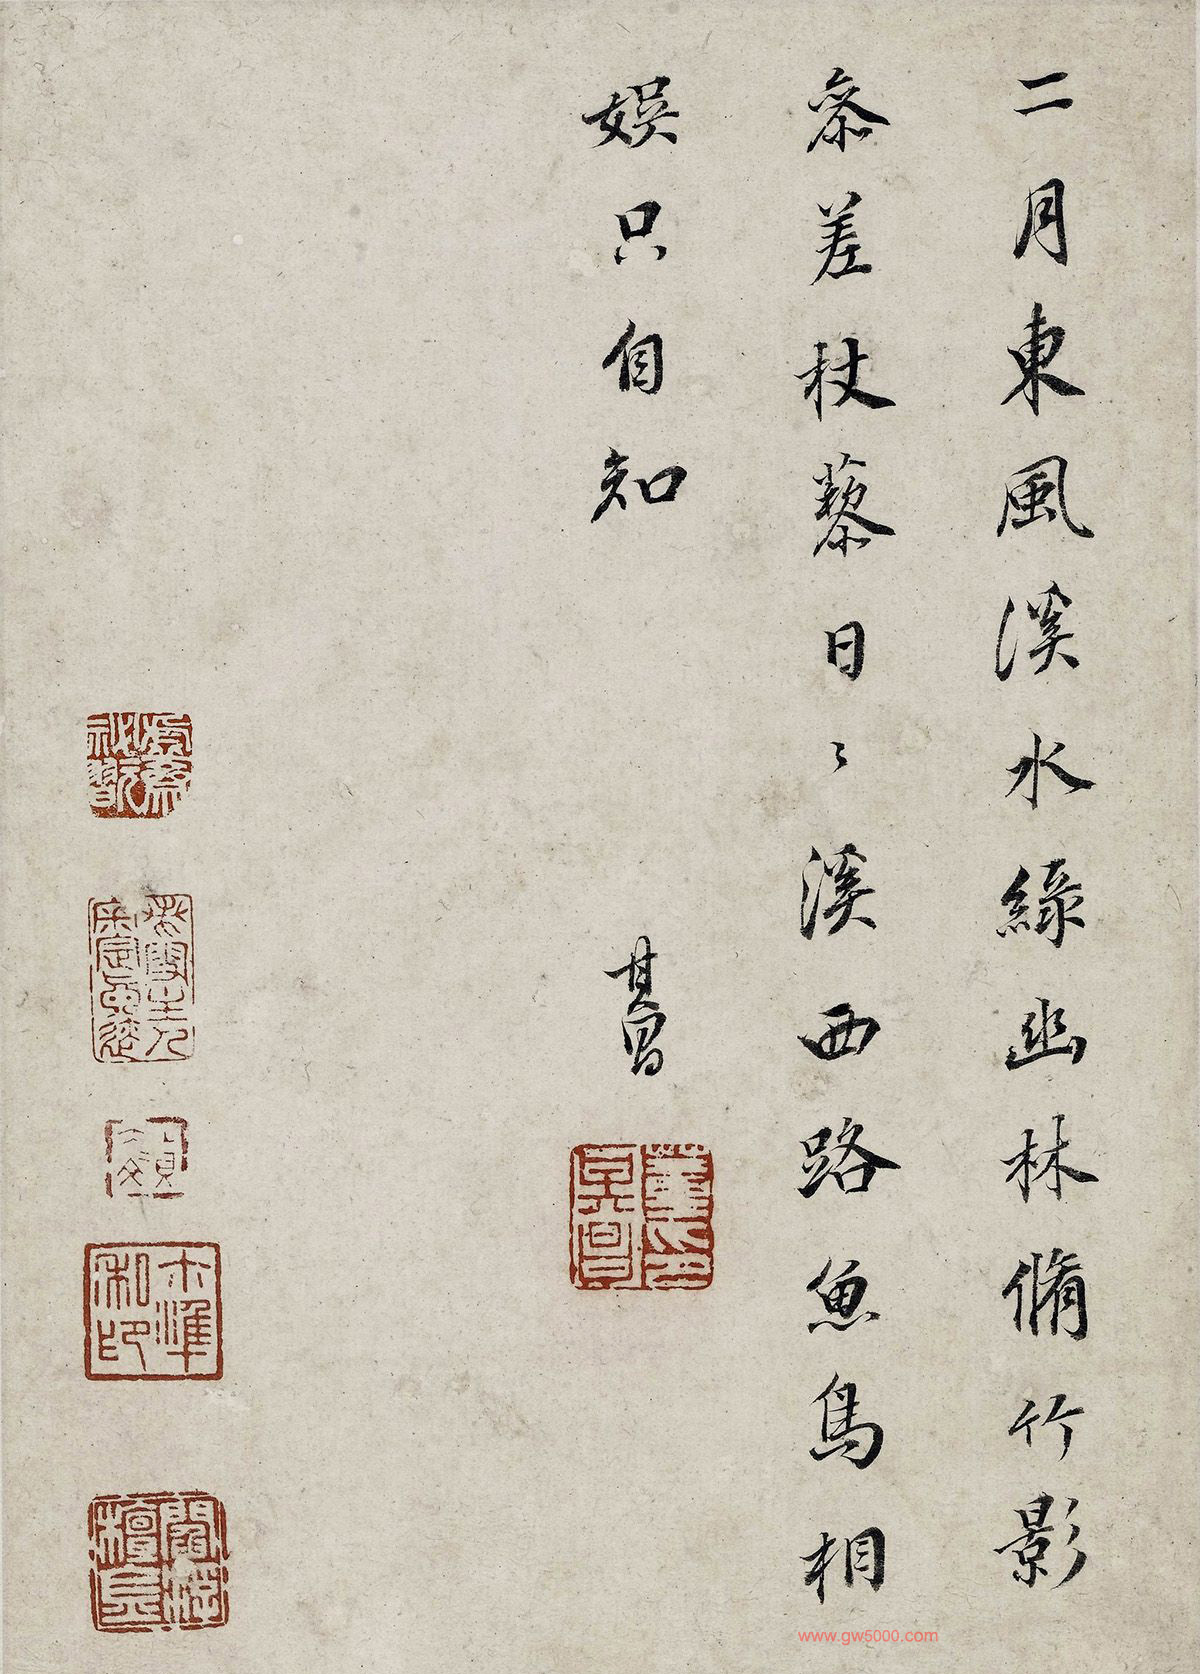 二月東風溪水綠幽林脩竹影
參差杖藜日〻溪西路魚鳥相
娛只自知
其昌
www.gw5000.com